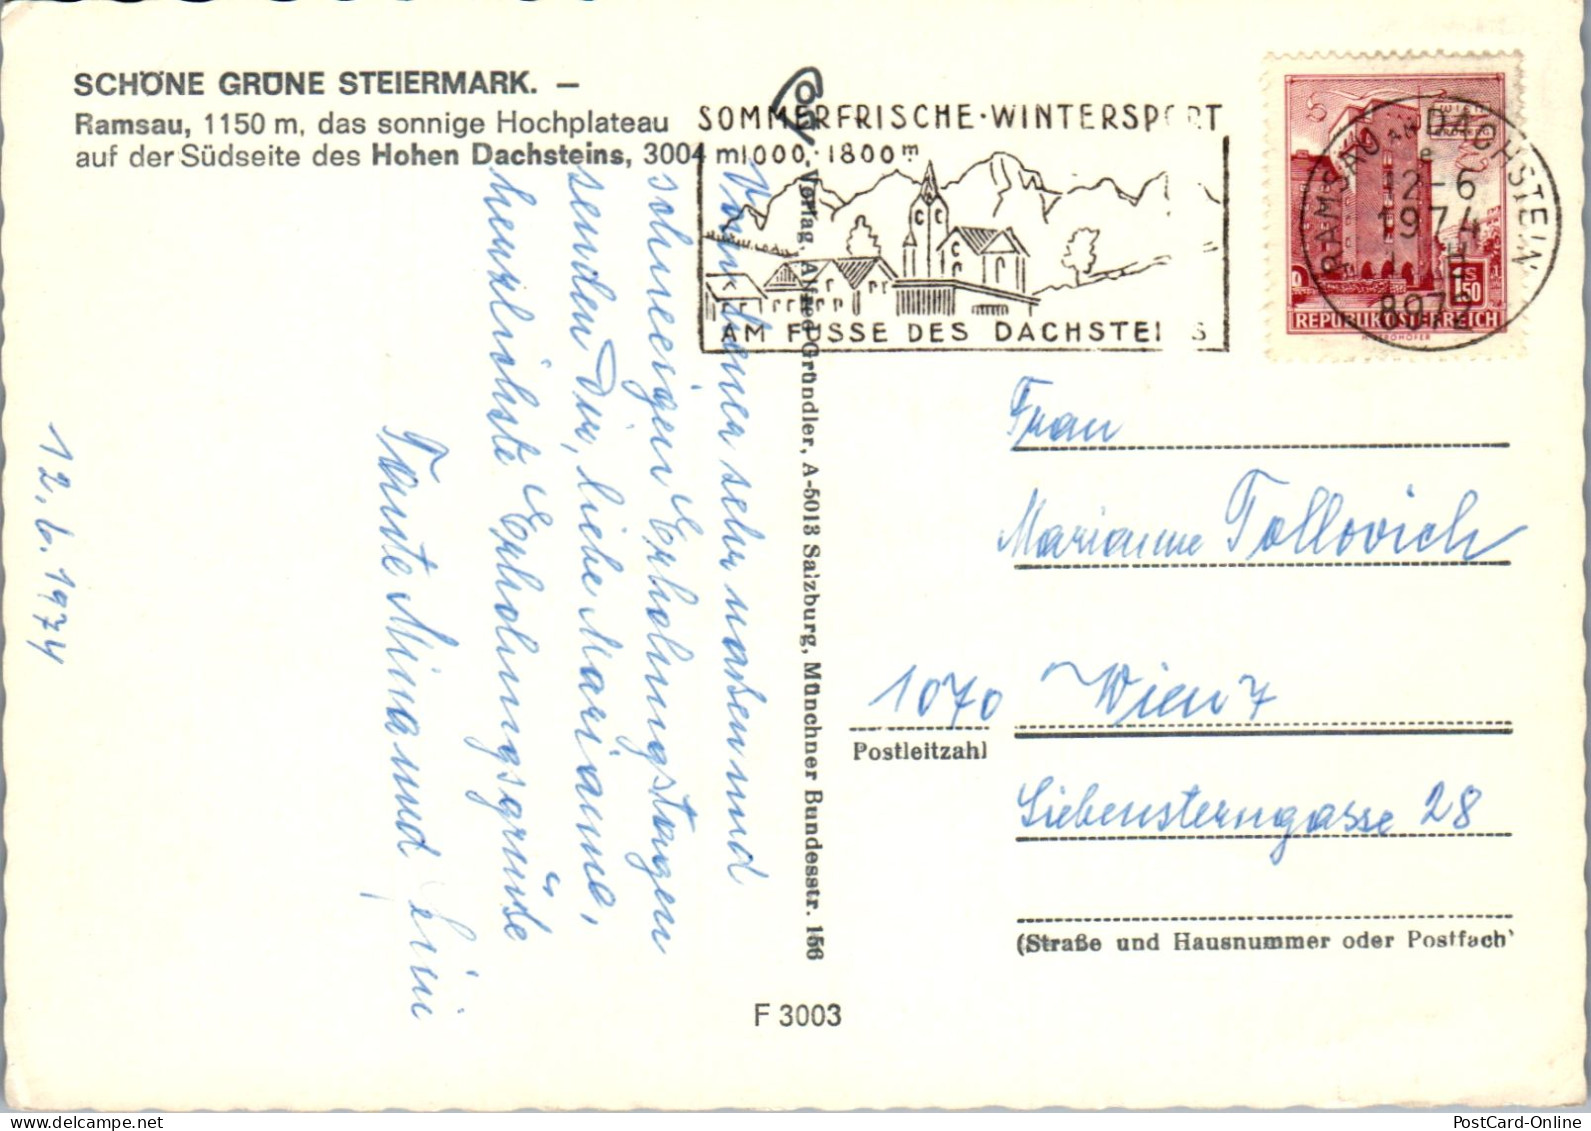 SCHÖNE GRÜNE STEIERMARK. –
Ramsau, 1150 m, das sonnige Hochplateau
auf der Südseite des Hohen Dachsteins, 3004 m
SOMMERFRISCHE·WINTERSPORT
1000·1800m
AM FUSSE DES DACHSTEINS
RAMSAU AM DACHSTEIN
e
12-6
1974
8972
WIEN
S 1.50
REPUBLIK ÖSTERREICH
12. 6. 1974
Von einem sehr nassen und
schneeigen Erholungstagen
senden Dir, liebe Marianne,
herzlichste Erholungsgrüße
Tante Mina und
Verlag, Alfred Gründler, A-5013 Salzburg, Münchner Bundesstr. 156
Frau
Marianne Tollovich
1070 Wien 7
Postleitzahl
Siebensterngasse 28
(Straße und Hausnummer oder Postfach)
F 3003
PostCard-Online